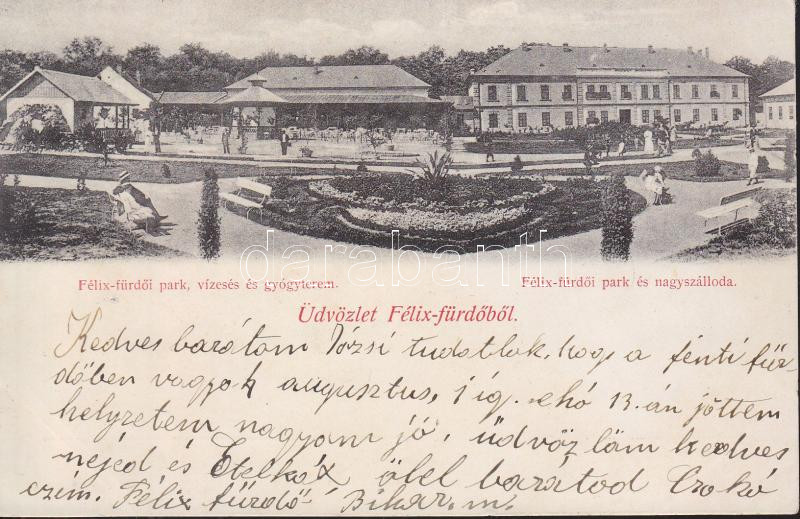 Félix-fürdői park, vízesés és gyógyterem.
Félix-fürdői park és nagyszálloda.
Üdvözlet Félix-fürdőből.
darabanth
Kedves barátom Józsi tudatlak, hogy a fenti für-
dőben vagyok augusztus, 1 ig. ehó 13.án jöttem
helyzetem nagyon jó, üdvözlöm kedves
nejed és Etelkát ölel barátod
czim. Félix fürdő Bihar. m.